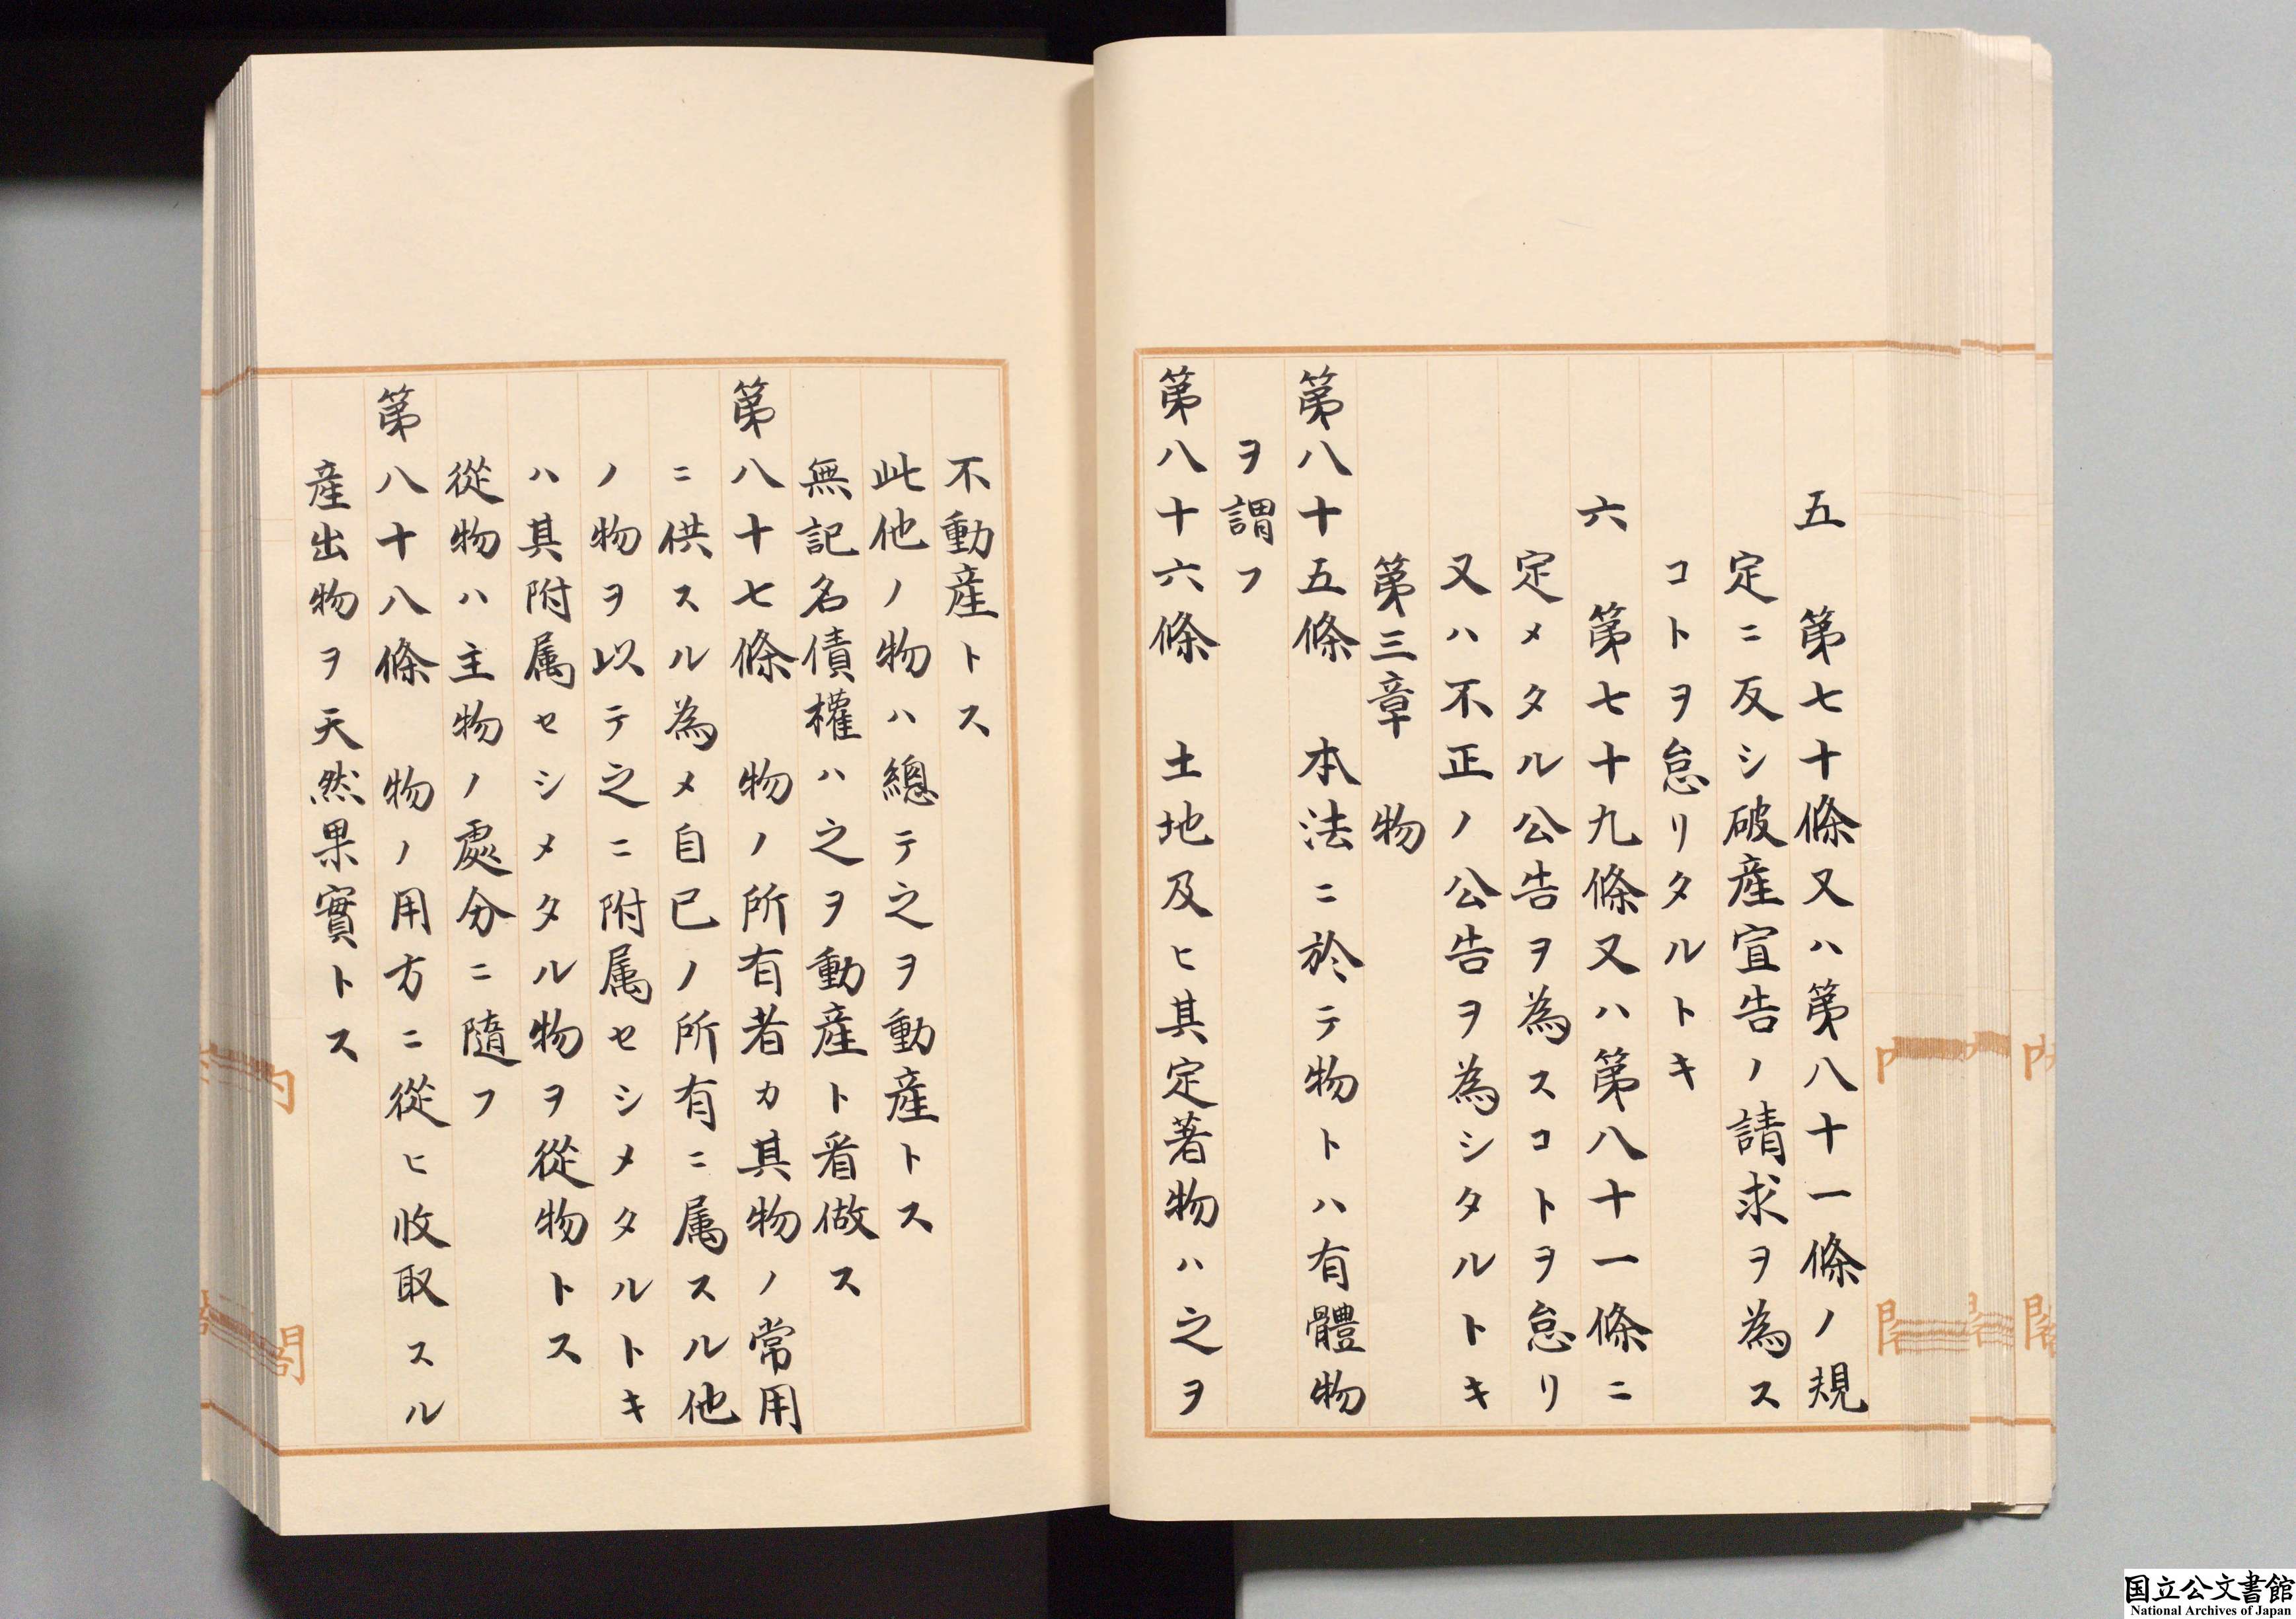 五　第七十條又ハ第八十一條ノ規
定ニ反シ破産宣告ノ請求ヲ為ス
コトヲ怠リタルトキ
六　第七十九條又ハ第八十一條ニ
定メタル公告ヲ為スコトヲ怠リ
又ハ不正ノ公告ヲ為シタルトキ
第三章　物
第八十五條　本法ニ於テ物トハ有體物
ヲ謂フ
第八十六條　土地及ヒ其定著物ハ之ヲ
不動産トス
此他ノ物ハ總テ之ヲ動産トス
無記名債權ハ之ヲ動産ト看做ス
第八十七條　物ノ所有者カ其物ノ常用
ニ供スル為メ自己ノ所有ニ属スル他
ノ物ヲ以テ之ニ附属セシメタルトキ
ハ其附属セシメタル物ヲ從物トス
從物ハ主物ノ處分ニ隨フ
第八十八條　物ノ用方ニ從ヒ收取スル
産出物ヲ天然果實トス
内
閣
国立公文書館
National Archives of Japan